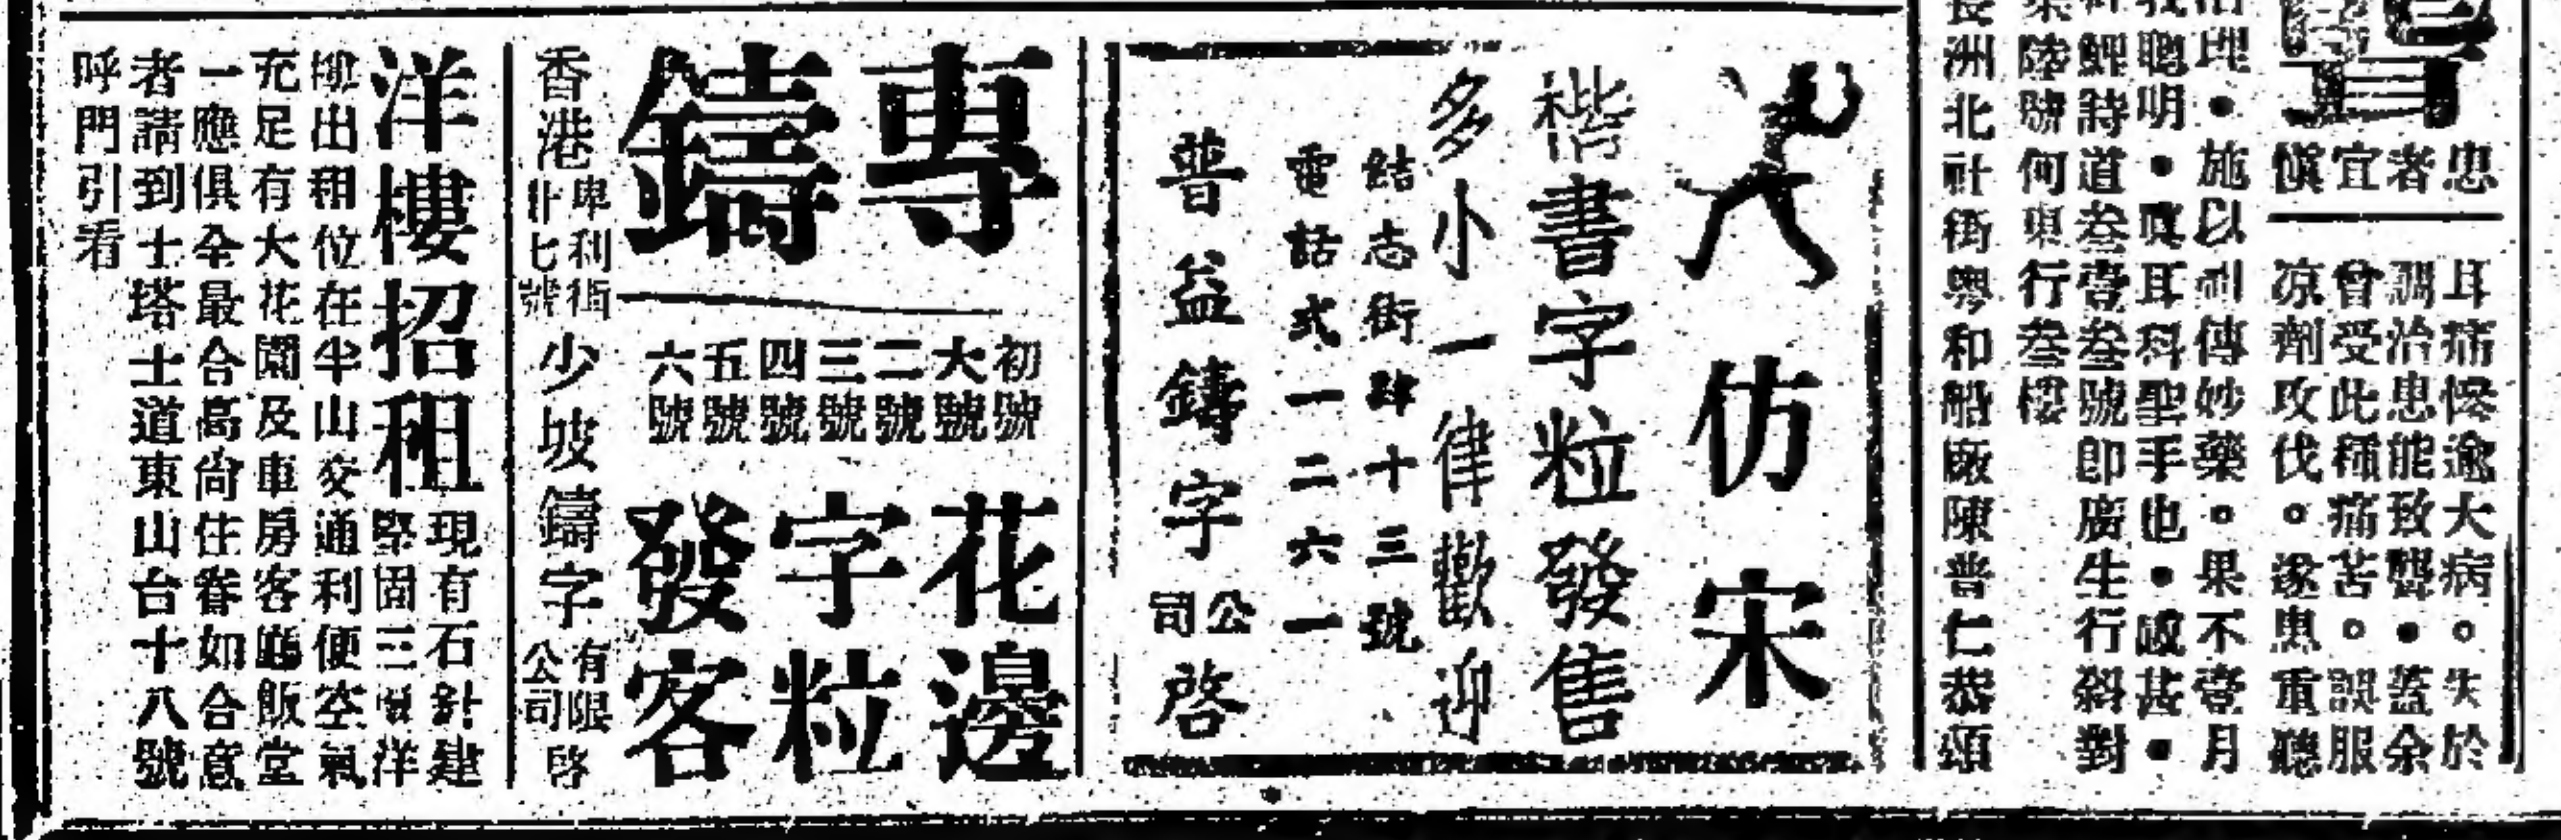 患
者
宜
慎
耳痛懌逾大病。失於
調治患能致聾·蓋余
曾受此種痛苦。誤服
凉劑攻伐。遂患重聽
施以利傳妙藥。果不壹月
聰明·真耳科聖手也·感甚·
鯉詩道叁壹叁號即廣生行斜對
陸號何東行叁樓
長洲北社街粵和船廠陳普仁恭頌
仿宋
楷書字粒發售
多小一律歡迎
結志街肆十三號
電話式一二六一
普益鑄字公司啓
專鑄
初號
大號
二號
三號
四號
五號
六號
花邊
字粒
發客
香港卑利街廿七號少坡鑄字有限公司啓
洋樓招租
現有石針建
堅固三層洋
樓出租位在半山交通利便空氣
充足有大花園及車房客廳飯堂
一應俱全最合高尚住眷如合意
者請到士塔士道東山台十八號
呼門引看